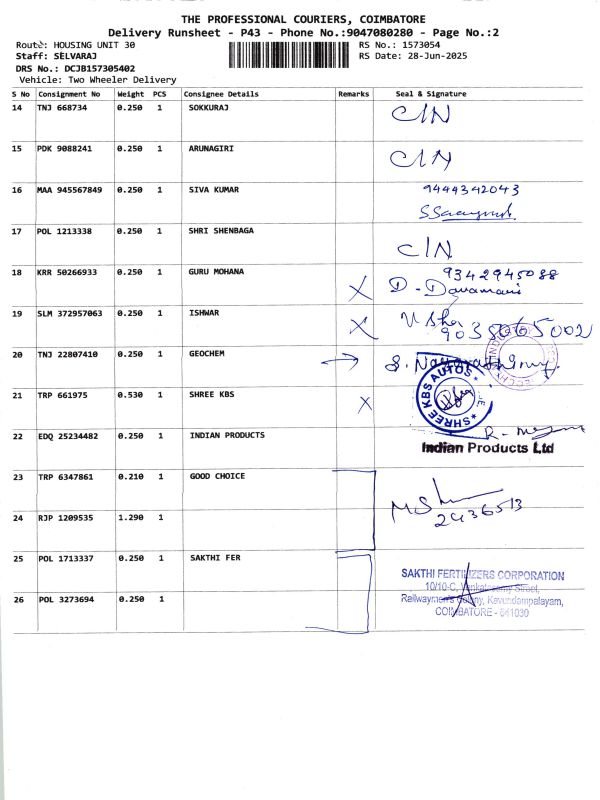 THE PROFESSIONAL COURIERS, COIMBATORE
Delivery Runsheet - P43 - Phone No.:9047080280 - Page No.:2
Route: HOUSING UNIT 30
RS No.: 1573054
Staff: SELVARAJ
RS Date: 28-Jun-2025
DRS No.: DCJB157305402
Vehicle: Two Wheeler Delivery
S No Consignment No Weight PCS Consignee Details Remarks Seal & Signature
14 TNJ 668734 0.250 1 SOKKURAJ CIN
15 PDK 9088241 0.250 1 ARUNAGIRI CIN
16 MAA 945567849 0.250 1 SIVA KUMAR 9444342043
17 POL 1213338 0.250 1 SHRI SHENBAGA CIN
18 KRR 50266933 0.250 1 GURU MOHANA X 9342945088
D. Davamani
19 SLM 372957063 0.250 1 ISHWAR X Usha
9038065002
20 TNJ 22807410 0.250 1 GEOCHEM →
21 TRP 661975 0.530 1 SHREE KBS X SHREE KBS AUTOS
22 EDQ 25234482 0.250 1 INDIAN PRODUCTS
Indian Products Ltd
23 TRP 6347861 0.210 1 GOOD CHOICE
2436513
24 RJP 1209535 1.290 1
25 POL 1713337 0.250 1 SAKTHI FER SAKTHI FERTILIZERS CORPORATION
10/10-C, Venkatasamy Street,
Railwaymen's Colony, Kavundampalayam,
COIMBATORE - 641030
26 POL 3273694 0.250 1